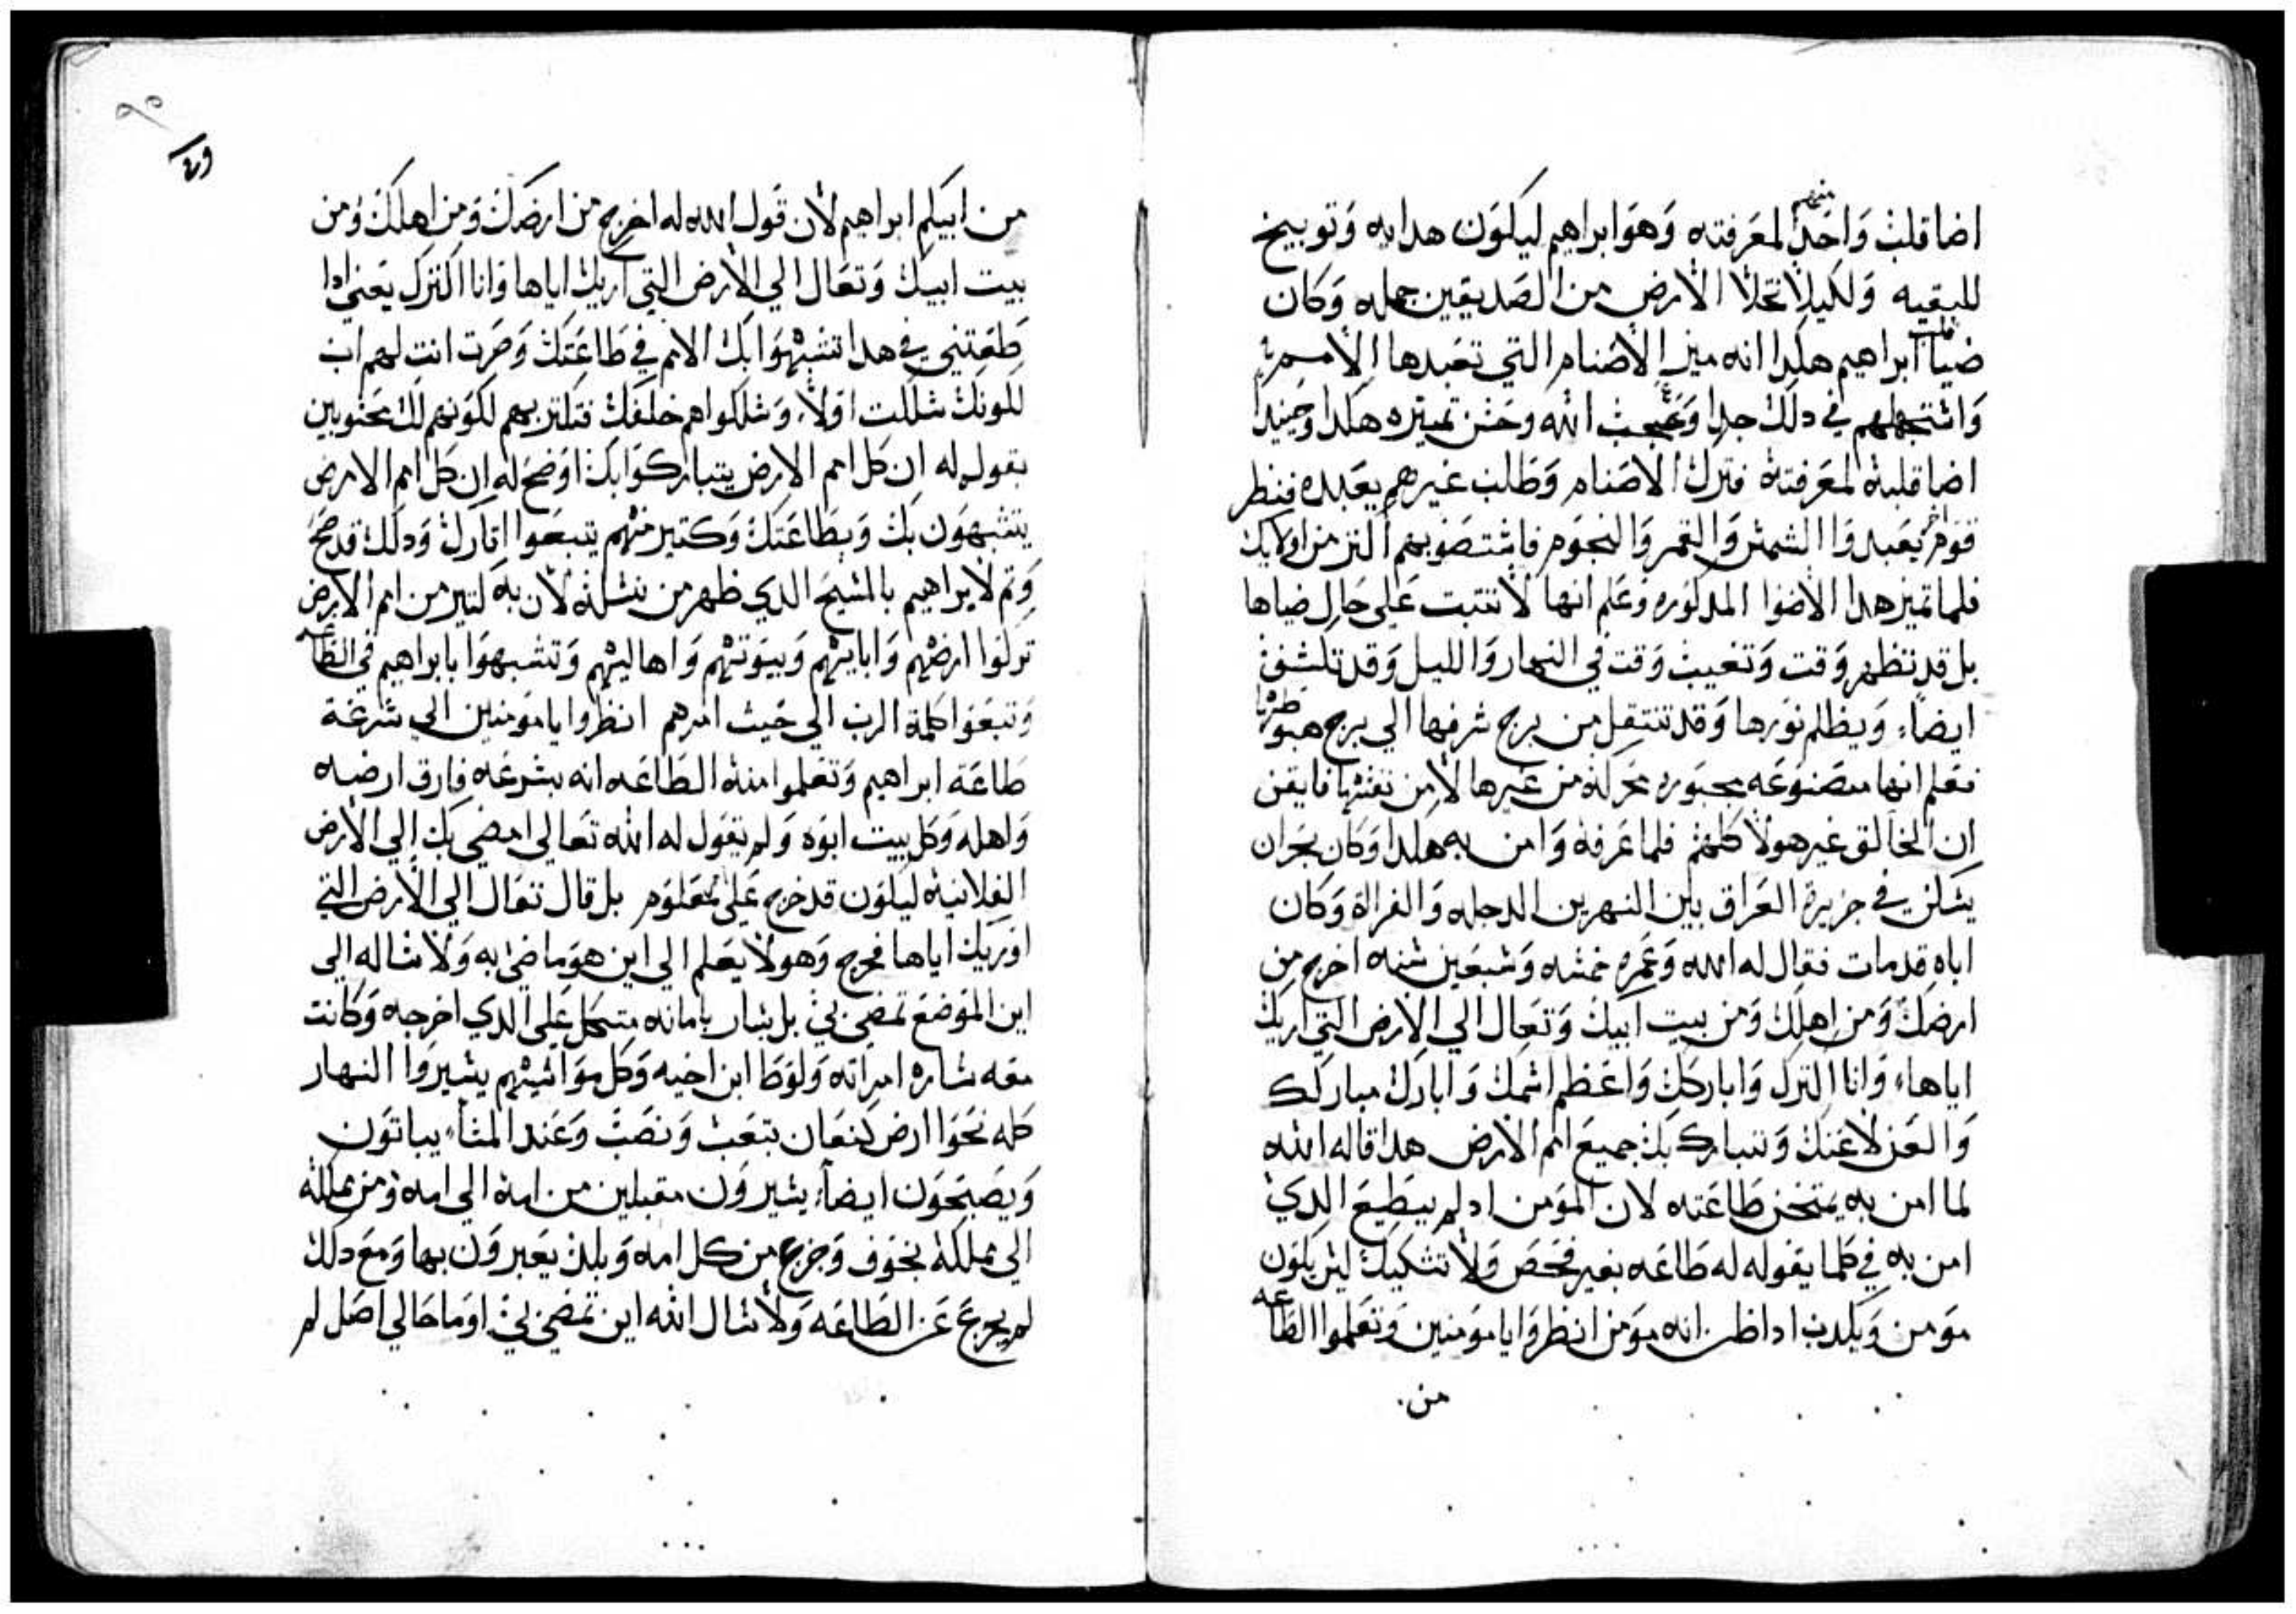 منهم
اضا قلب واحدا لمعرفته وهو ابراهيم ليكون هدايه وتوبيخ
للبقيه ولكيلا تخلا الارض من الصديقين جمله وكان
ضيا قلب ابراهيم هكدا انه ميز الاصنام التي تعبدها الامم
واستجهلهم في دلك جدا وعجب الله وحسن تميزه هكدا وحينيدا
اضا قلبه لمعرفته فترك الاصنام وطلب غيرهم يعبده فنظر
قوم اخر يعبدوا الشمس والقمر والنجوم فاستصوبهم اكتر من اولايك
فلما تميز هدا الاضوا المدكوره وعلم انها لا تتبت علي حال ضياها
بل قد تظهر وقت وتغيب وقت في النهار والليل وقد تكسف
ايضا ويظلم نورها وقد تنتقل من برج شرفها الي برج هبوطها
فعلم انها مصنوعه مجبوره محركه من غيرها لا من نفسها فايقن
ان الخالق غير هولا كلهم فلما عرفه وامن به هكدا وكان بحران
يسكن في جزيرة العراق بين النهرين الدجله والفراة وكان
اباه قد مات فقال له الله وعمره خمسه وسبعين سنه اخرج من
ارضك ومن اهلك ومن بيت ابيك وتعال الي الارض التي اريك
اياها وانا اكترك واباركك واعظم اسمك وابارك مباركك
والعن لاعنك وتتبارك بك جميع امم الارض هدا قاله الله
لما امن به يمتحن طاعته لان المومن اد لم يطيع الدي
امن به في كلما يقوله له طاعه بغير فحص ولا تشكيك ليس يكون
مومن ويكدب ادا ظن انه مومن انظروا يا مومنين وتعلموا الطاعه
من
من ابيكم ابراهيم لان قول الله له اخرج من ارضك ومن اهلك ومن
بيت ابيك وتعال الي الارض التي اريك اياها وانا اكترك يعني ادا
طعتني في هدا تشبهوا بك الامم في طاعتك وصرت انت لهم اب
لكونك سلكت اولا وسلكوا هم خلفك فتكتر بهم لكونهم لك محسوبين
بقوله له ان كل امم الارض يتباركوا بك اوضح له ان كل امم الارض
يتشبهون بك وبطاعتك وكتير منهم يتبعوا اتارك ودلك قد صح
وتم لابراهيم بالمسيح الدي ظهر من نسله لان به كتير من امم الارض
تركوا ارضهم واباييهم وبيوتهم واهاليهم وتشبهوا بابراهيم في الطاعه
وتبعوا كلمة الرب الي حيث امرهم انظروا يا مومنين الي سرعة
طاعة ابراهيم وتعلموا منه الطاعه انه بسرعه فارق ارضه
واهله وكل بيت ابوه ولم يقول له الله تعالي امضي بك الي الارض
الفلانيه ليكون قد خرج علي معلوم بل قال تعال الي الارض التي
اوريك اياها فخرج وهو لا يعلم الي اين هو ماضي به ولا ساله الي
اين الموضع تمضي بي بل سار بامانه متكل علي الدي اخرجه وكانت
معه ساره امراته ولوطا ابن اخيه وكل مواشيهم يسيروا النهار
كله نحوا ارض كنعان بتعب ونصب وعند المسا يباتون
ويصبحون ايضا يسيرون مقبلين من امه الي امه ومن مملكه
الي مملكه بخوف وجزع من كل امه وبلد يعبرون بها ومع دلك
لم يرجع عن الطاعه ولا سال الله اين تمضي بي او ما حالي اصل لم